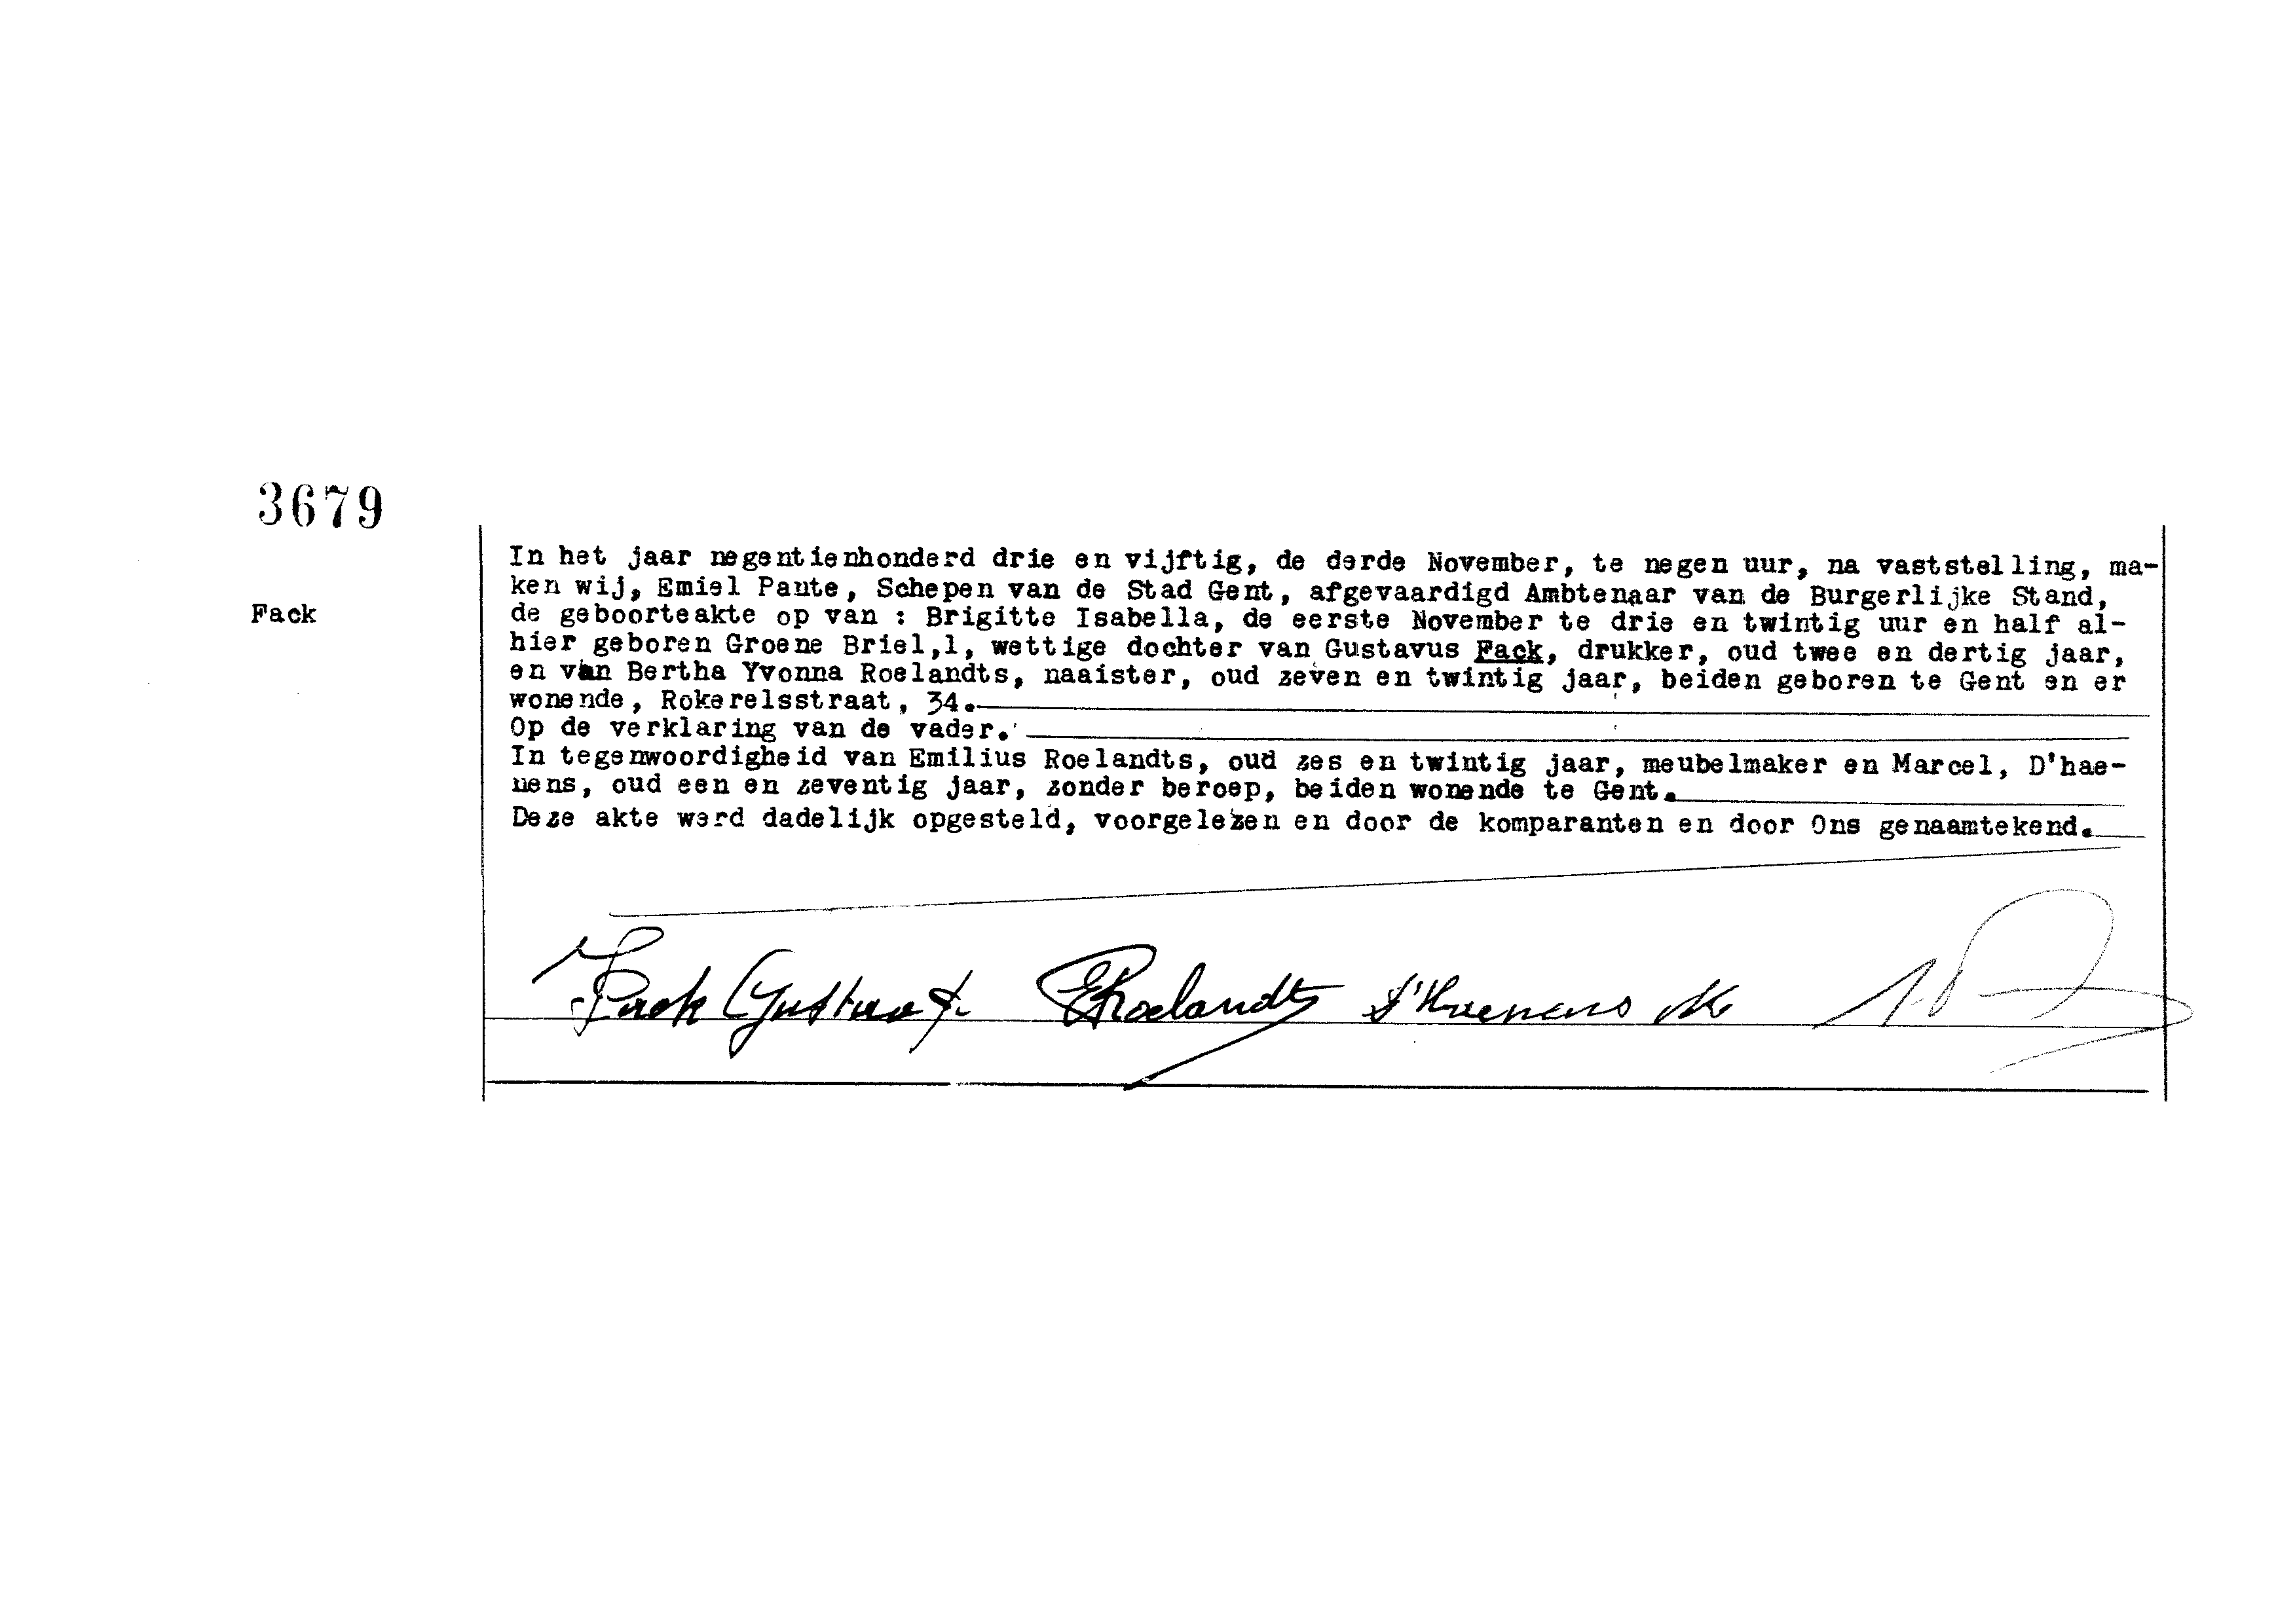 3679
Fack
In het jaar negentienhonderd drie en vijftig, de derde November, te negen uur, na vaststelling, ma-
ken wij, Emiel Paute, Schepen van de Stad Gent, afgevaardigd Ambtenaar van de Burgerlijke Stand,
de geboorteakte op van : Brigitte Isabella, de eerste November te drie en twintig uur en half al-
hier geboren Groene Briel,1, wettige dochter van Gustavus Fack, drukker, oud twee en dertig jaar,
en van Bertha Yvonna Roelandts, naaister, oud zeven en twintig jaar, beiden geboren te Gent en er
wonende, Rokerelsstraat, 34.
Op de verklaring van de vader.
In tegenwoordigheid van Emilius Roelandts, oud zes en twintig jaar, meubelmaker en Marcel, D'hae-
nens, oud een en zeventig jaar, zonder beroep, beiden wonende te Gent.
Deze akte werd dadelijk opgesteld, voorgelezen en door de komparanten en door Ons genaamtekend.
Fack Gustaaf. ERoelandts D'Haenens M